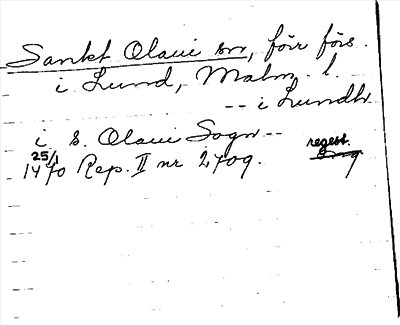 Sankt Olaui sn, förr förs.
i Lund, Malm. l.
-- i Lundh
i S. Olaui Sogn --
25/1 1470 Rep. II nr 2709. regest.